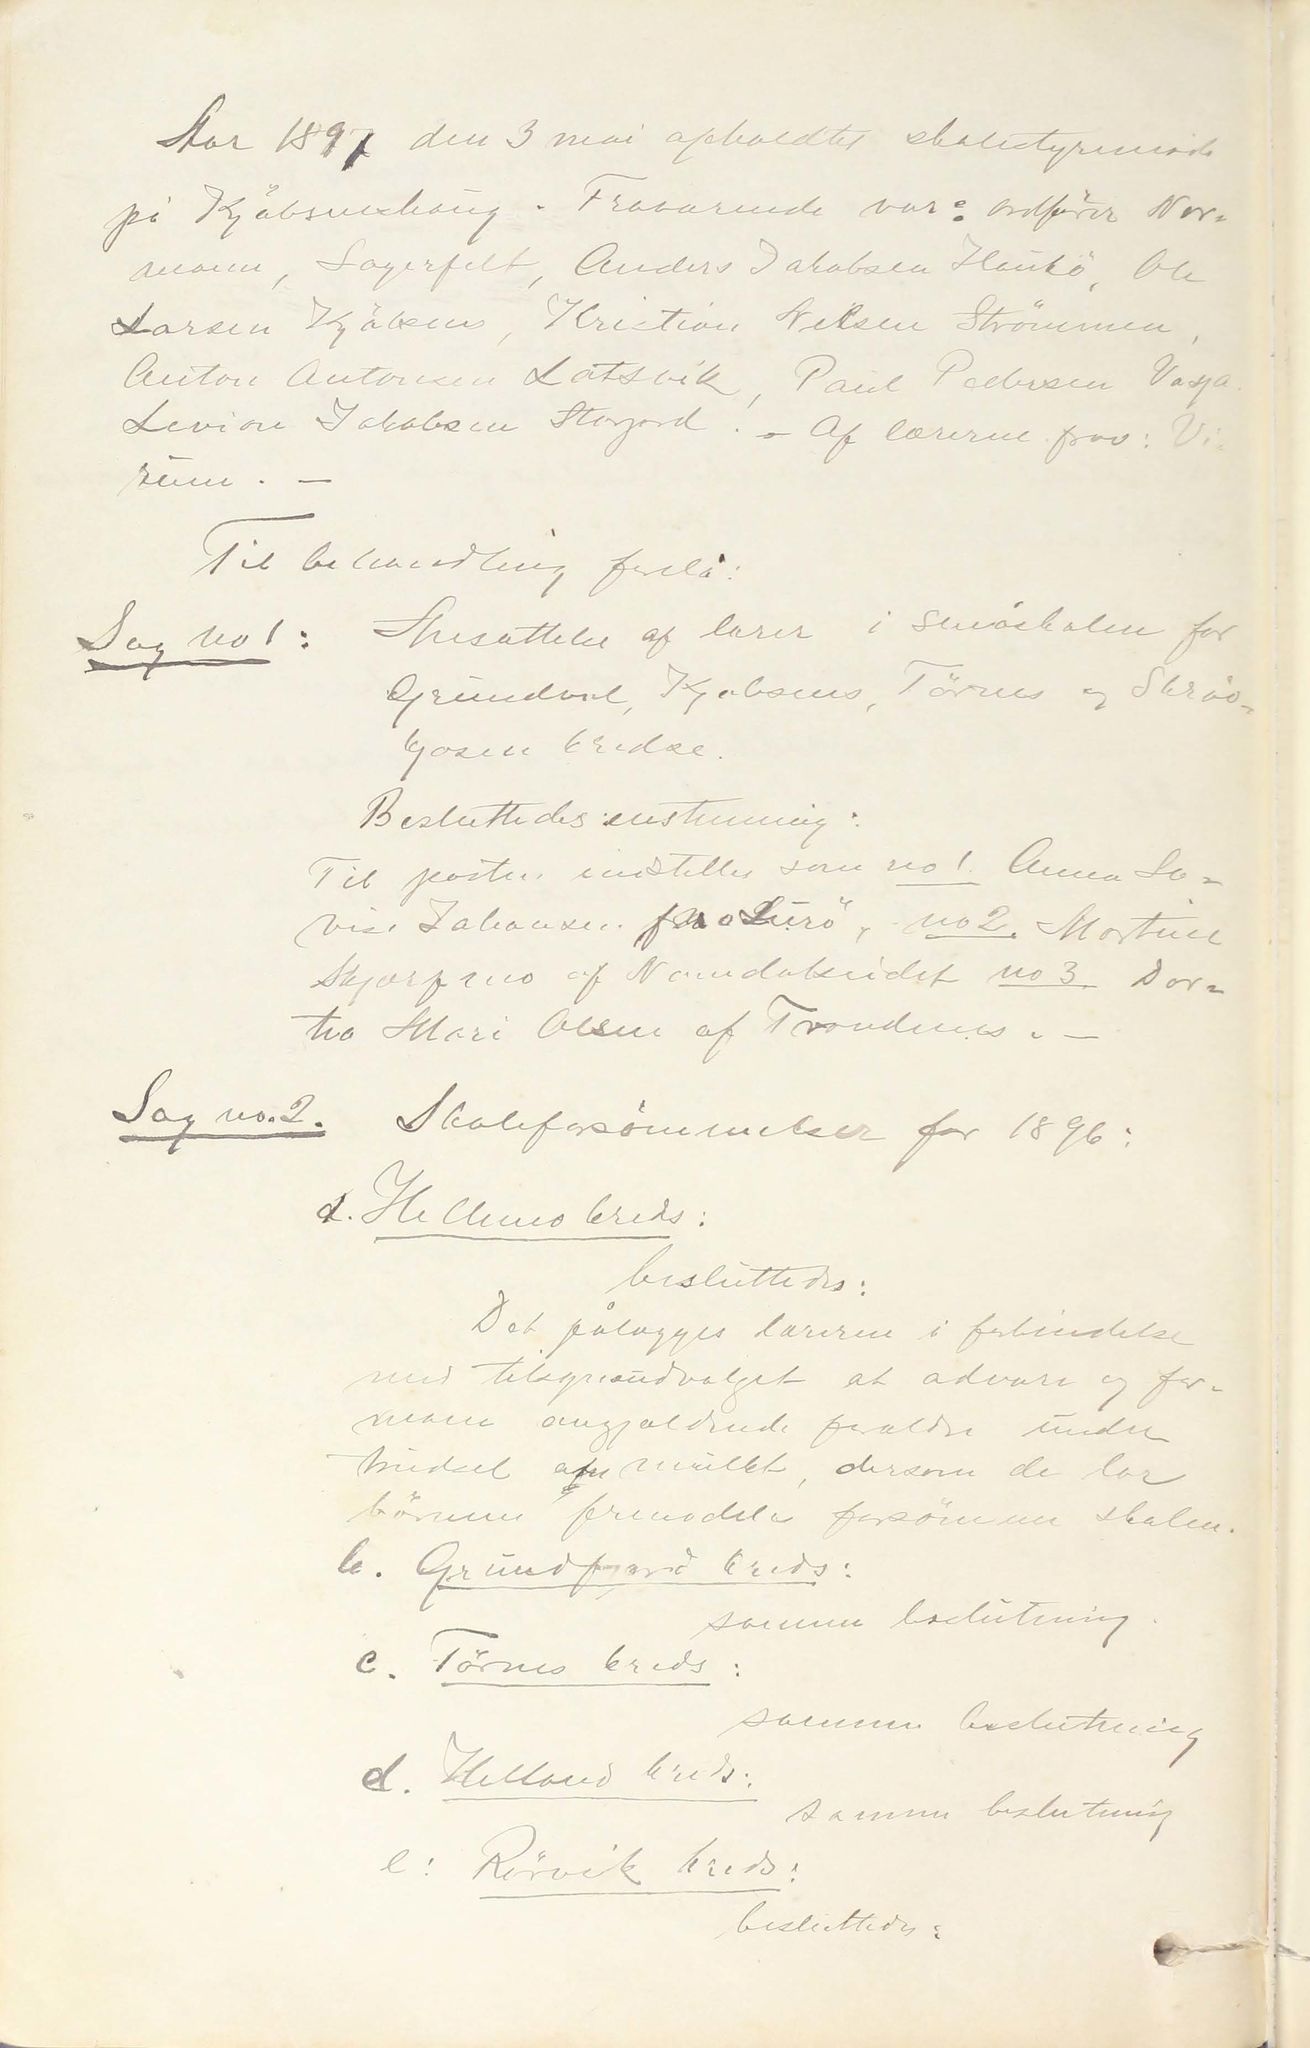 Aar 1897 den 3 mai afholdtes skolestyremöde
på Kjöbsneshaug. Fraværende var: ordförer Nor-
mann, Lagerfelt, Anders Jakobsen Haukö, Ole
Larsen Kjöbsnes, Kristian Nilsen Strömmen,
Anton Antonsen Latsvik, Paul Pedersen Vasja
Levion Jakobsen Storjord. – Af lærerne frav: Vi-
rum. –
Til behandling forelå:
Sag no 1: Ansættelse af lærer i småskolen for
Grundvad, Kjöbsnes, Törnes og Skrov-
kjosen kredse.
Besluttedes enstemmig:
Til posten indstilles som no 1. Anna Lo-
vise Johansen fra Lurö, no 2. Martine
Skjerpmo af Namdalseidet no 3 Dor-
tea Mari Olsen af Trondenes. –
Sag no. 2. Skoleforsömmelser for 1896:
a. Hellemo kreds:
besluttedes:
Det pålægges læreren i forbindelse
med tilsynsudvalget at advare og for-
mane angjældende forældre under
trudsel om mulkt, dersom de lar
börnene fremdeles forsömme skolen.
b. Grundfjord kreds:
samme beslutning.
c. Törnes kreds:
samme beslutning
d. Helland kreds:
samme beslutning
e: Rörvik kreds:
besluttedes: